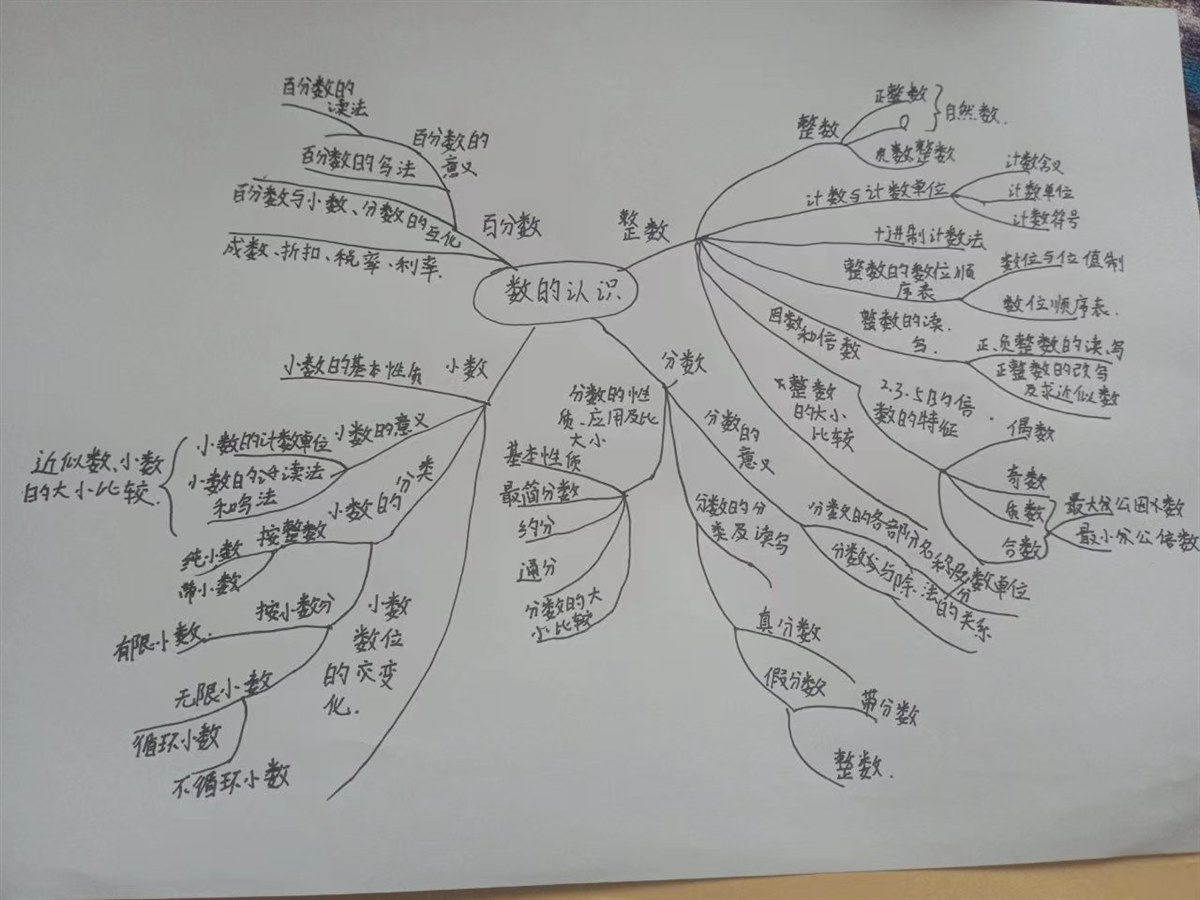 数的认识
整数
整数
正整数
0
自然数.
负整数
计数与计数单位
计数含义
计数单位
计数符号
十进制计数法
整数的数位顺
序表
数位与位值制
数位顺序表.
整数的读.
写.
正、负整数的读、写
正整数的改写
及求近似数
因数
和倍数
2.3.5的倍
数的特征
偶数
奇数
质数
合数
最大公因数
最小公倍数
整数
的大小
比较
分数
分数的性
质、应用及比
大小
基本性质
最简分数
约分
通分
分数的大
小比较
分数的
意义
分数的各部分名称及分数单位
分数与除法的关系
分数的分
类及读写
真分数
假分数
带分数
整数.
小数
小数的基本性质
小数的意义
小数的计数单位
小数的读法
和写法
近似数、小数
的大小比较.
小数的分类
按整数
纯小数
带小数
按小数分
有限小数.
无限小数
循环小数
不循环小数
小数
数位
的变
化.
百分数
百分数的
意义
百分数的
读法
百分数的写法
百分数与小数、分数的互化
成数、折扣、税率、利率.